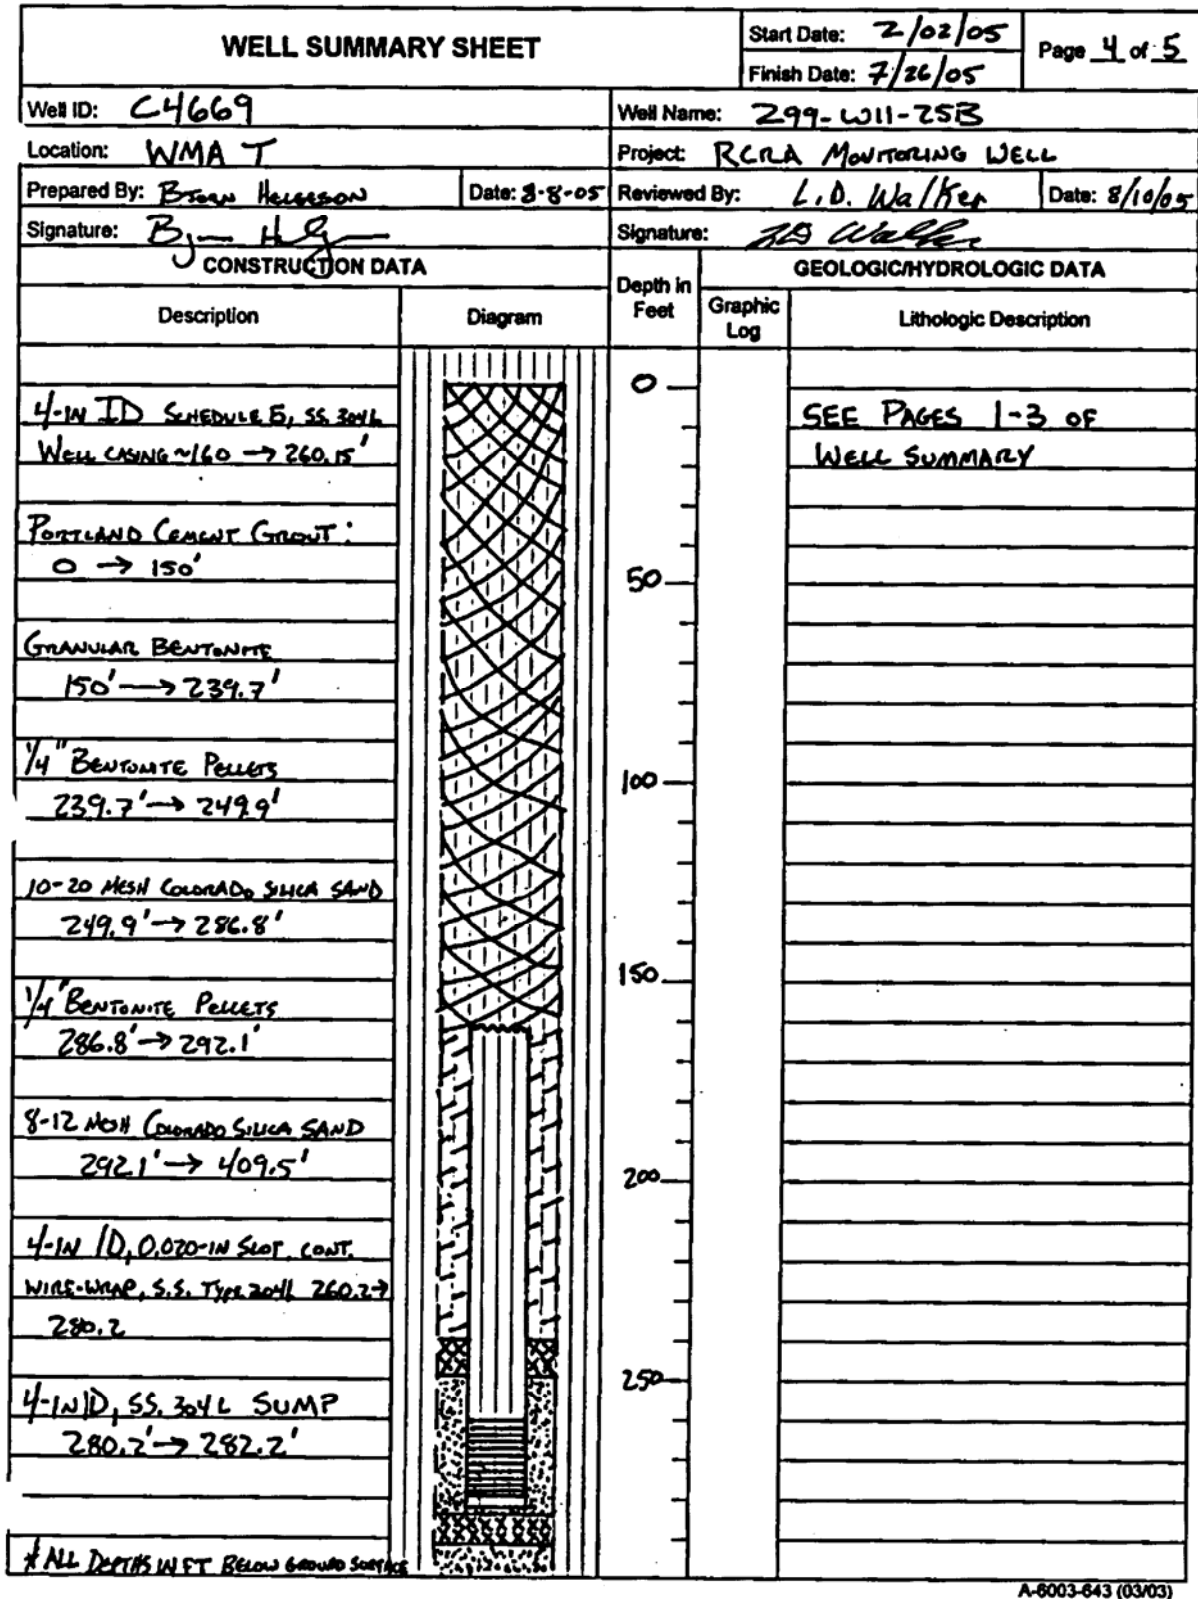 WELL SUMMARY SHEET
Start Date: 2/02/05
Finish Date: 7/26/05
Page 4 of 5
Well ID: C4669
Well Name: 299-W11-25B
Location: WMA T
Project: RCRA MONITORING WELL
Prepared By: BJORN HELGESON
Date: 8-8-05
Reviewed By: L.D. Walker
Date: 8/10/05
Signature:
Signature: LD Walker
CONSTRUCTION DATA
Depth in Feet
GEOLOGIC/HYDROLOGIC DATA
Description
Diagram
Graphic Log
Lithologic Description
0
4-IN ID SCHEDULE 5, SS. 304L
WELL CASING ~160 → 260.15'
SEE PAGES 1-3 OF
WELL SUMMARY
PORTLAND CEMENT GROUT:
0 → 150'
50
GRANULAR BENTONITE
150' → 239.7'
1/4" BENTONITE PELLETS
239.7' → 249.9'
100
10-20 MESH COLORADO SILICA SAND
249.9' → 286.8'
150
1/4" BENTONITE PELLETS
286.8' → 292.1'
8-12 MESH COLORADO SILICA SAND
292.1' → 409.5'
200
4-IN ID, 0.020-IN SLOT, CONT.
WIRE-WRAP, S.S. TYPE 304L 260.2 →
280.2
250
4-IN ID, SS. 304L SUMP
280.2' → 282.2'
* ALL DEPTHS IN FT BELOW GROUND SURFACE
A-6003-643 (03/03)